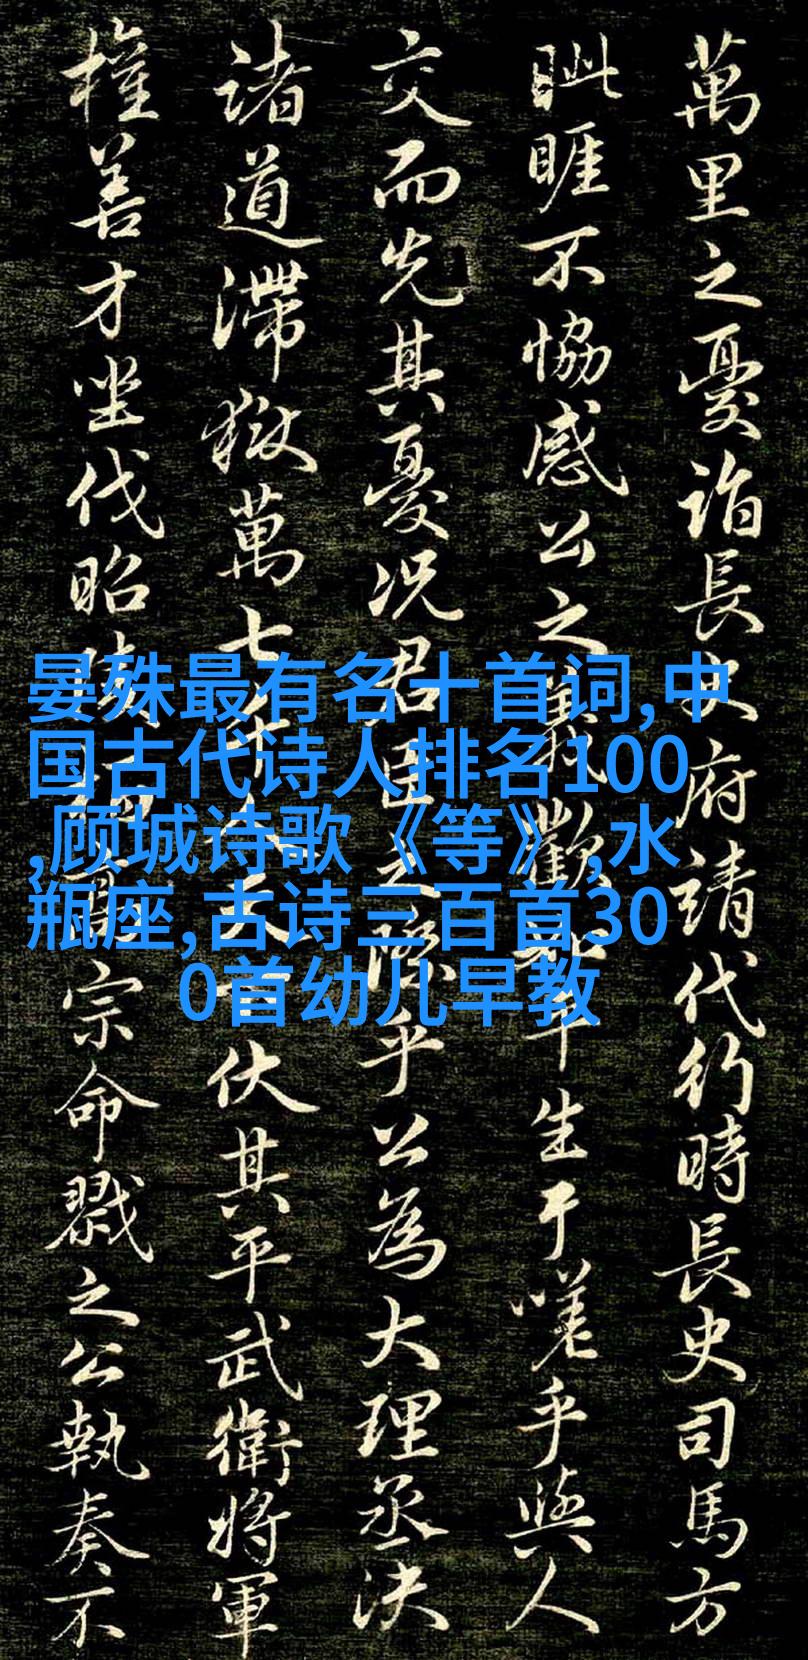 萬里之憂詣長史府請代行時長史司馬方
眦睚不恊感公之義歡平生于嗟乎與人
交而先其憂况君臣之際乎公為大理丞決
諸道滯獄萬七千人天下伏其平武衛將軍
權善才坐伐昭陵高宗命戮之公執奏不
晏殊最有名十首词,中
国古代诗人排名100
,顾城诗歌《等》,水
瓶座,古诗三百首30
0首幼儿早教